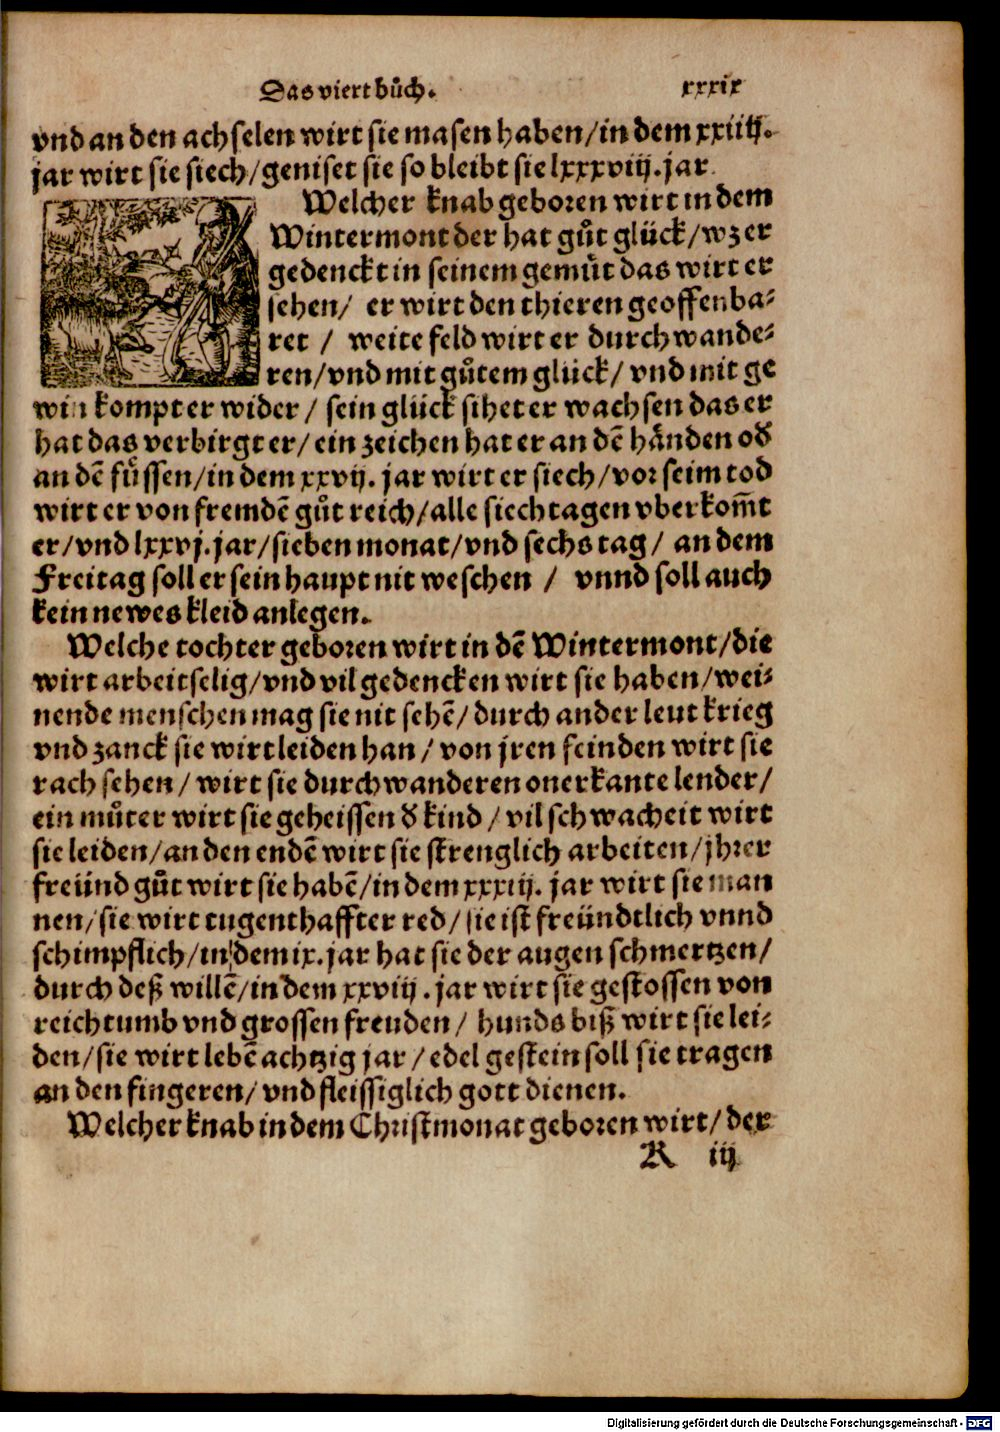 Das viert bůch. xxxix
vnd an den achselen wirt sie masen haben/in dem xxiiij.
jar wirt sie siech/geniset sie so bleibt sie lxxxviij.jar.
Welcher knab geboren wirt in dem
Wintermont der hat gůt glück/wz er
gedenckt in seinem gemüt das wirt er
sehen/ er wirt den thieren geoffenba-
ret / weite feld wirt er durchwande-
ren/vnd mit gůtem glück/ vnd mit ge
win kompt er wider / sein glück sihet er wachsen das er
hat das verbirgt er/ ein zeichen hat er an dē händen oď
an dē füssen/in dem xxvij. jar wirt er siech/vor seim tod
wirt er von fremdē gůt reich/alle siechtagen vberkom̃t
er/vnd lxxvj.jar/sieben monat/vnd sechs tag/ an dem
Freitag soll er sein haupt nit weschen / vnnd soll auch
kein newes kleid anlegen.
Welche tochter geboren wirt in dē Wintermont/die
wirt arbeitselig/vnd vil gedencken wirt sie haben/wei-
nende menschen mag sie nit sehē/ durch ander leut krieg
vnd zanck sie wirt leiden han / von jren feinden wirt sie
rach sehen/ wirt sie durchwanderen onerkante lender/
ein můter wirt sie geheissen ď kind / vil schwacheit wirt
sie leiden/an den endē wirt sie strenglich arbeiten/jhrer
freünd gůt wirt sie habē/in dem xxxiij. jar wirt sie man
nen/sie wirt tugenthaffter red/sie ist freündtlich vnnd
schimpflich/in dem ix.jar hat sie der augen schmertzen/
durch deß willē/in dem xxviij. jar wirt sie gestossen von
reichtumb vnd grossen freuden/ hunds biß wirt sie lei-
den/sie wirt lebē achtzig jar / edel gestein soll sie tragen
an den fingeren/ vnd fleissiglich gott dienen.
Welcher knab in dem Christmonat geboren wirt/ der
R iij
Digitalisierung gefördert durch die Deutsche Forschungsgemeinschaft - DFG